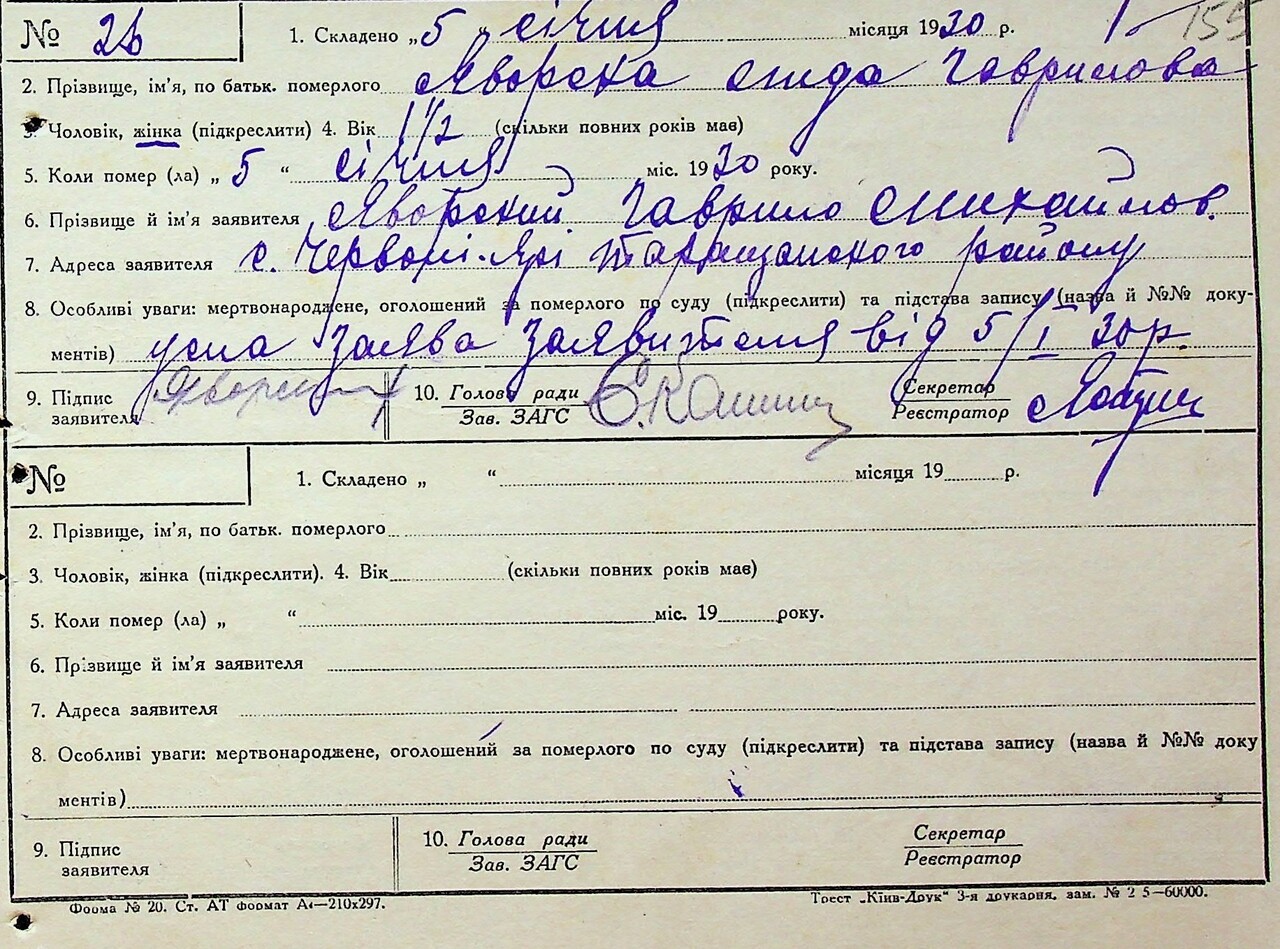 № 2b 1. Складено „5 „ січня місяця 1930 р. 155
2. Прізвище, ім'я, по батьк. померлого Яворска Лида Гаврилова
3. Чоловік, жінка (підкреслити) 4. Вік 1 1/2 (скільки повних років має)
5. Коли помер (ла) „ 5 “ січня міс. 1930 року.
6. Прізвище й ім'я заявителя Яворский Гаврило Михайлов.
7. Адреса заявителя с. Червоні-Ярі Таращанского району
8. Особливі уваги: мертвонароджене, оголошений за померлого по суду (підкреслити) та підстава запису (назва й №№ доку-
ментів) усна Заява Заявителя від 5/I 30 р.
9. Підпис заявителя Яворский 10. Голова ради Секретар
Зав. ЗАГС Реєстратор
№ 1. Складено „ “ місяця 19 р.
2. Прізвище, ім'я, по батьк. померлого
3. Чоловік, жінка (підкреслити). 4. Вік (скільки повних років має)
5. Коли помер (ла) „ “ міс. 19 року.
6. Прізвище й ім'я заявителя
7. Адреса заявителя
8. Особливі уваги: мертвонароджене, оголошений за померлого по суду (підкреслити) та підстава запису (назва й №№ доку
ментів)
9. Підпис 10. Голова ради Секретар
заявителя Зав. ЗАГС Реєстратор
Форма № 20. Ст. АТ формат А4—210х297. Трест „Київ-Друк“ 3-я друкарня, зам. № 2 5—60000.